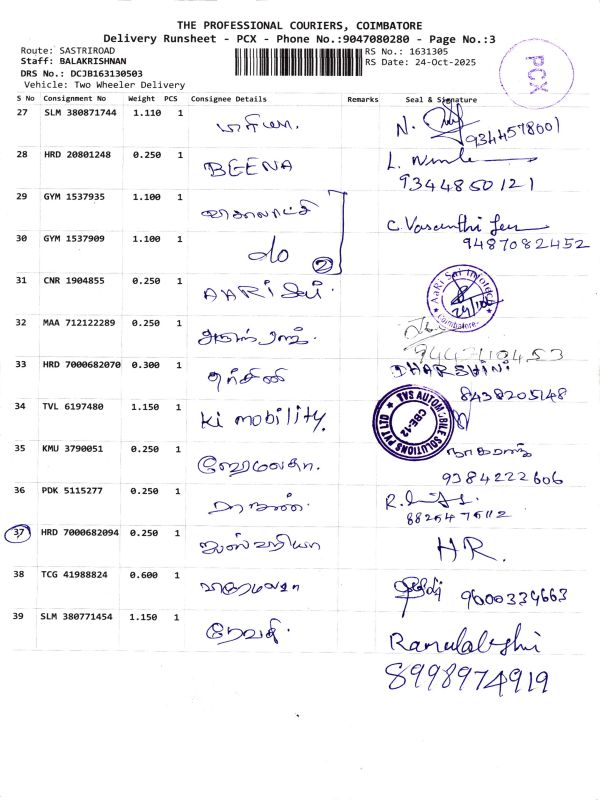 THE PROFESSIONAL COURIERS, COIMBATORE
Delivery Runsheet - PCX - Phone No.:9047080280 - Page No.:3
Route: SASTRIROAD
RS No.: 1631305
Staff: BALAKRISHNAN
RS Date: 24-Oct-2025
DRS No.: DCJB163130503
Vehicle: Two Wheeler Delivery
PCX
S No Consignment No Weight PCS Consignee Details Remarks Seal & Signature
27 SLM 380871744 1.110 1 N. 9344578001
28 HRD 20801248 0.250 1 BEENA L. 9344850121
29 GYM 1537935 1.100 1 C. Vasanthi
30 GYM 1537909 1.100 1 do 2 9487082452
31 CNR 1904855 0.250 1 AARi Sai. AaRi Sai Infotech Coimbatore
32 MAA 712122289 0.250 1
33 HRD 7000682070 0.300 1 தர்சினி DHARSHINI 8438205148
34 TVL 6197480 1.150 1 ki mobility. TVS AUTOMOBILE SOLUTIONS PVT LTD CBE-12
35 KMU 3790051 0.250 1 ஹேமலதா. நாகராஜ் 9384222606
36 PDK 5115277 0.250 1 R.
37 HRD 7000682094 0.250 1 HR.
38 TCG 41988824 0.600 1 9600334663
39 SLM 380771454 1.150 1 ரேவதி. 8998974919